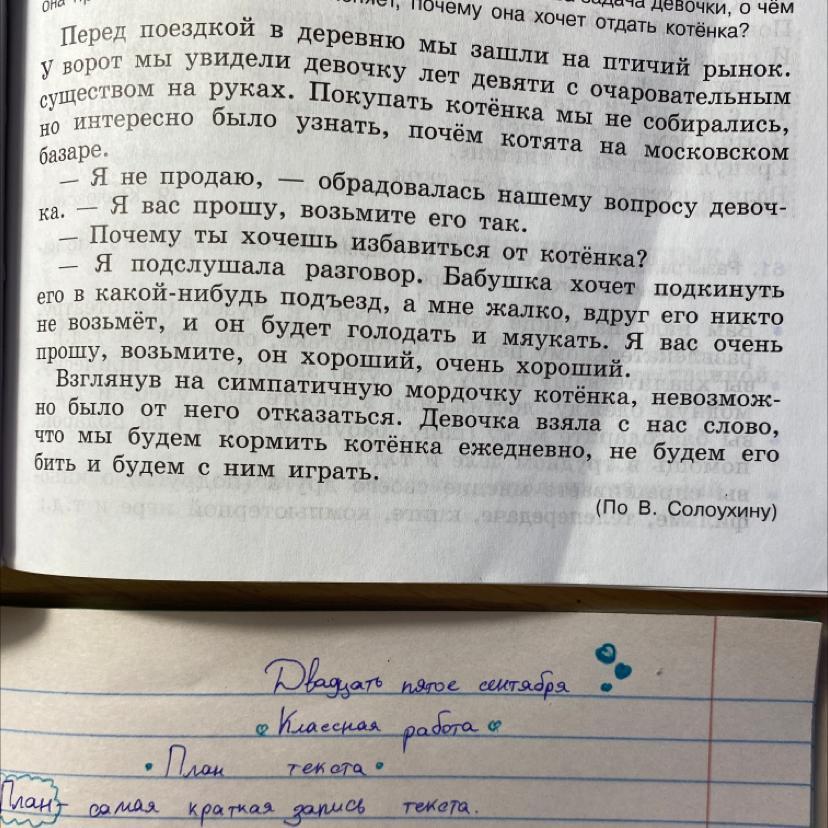 задача девочки, о чём
почему она хочет отдать котёнка?
Перед поездкой в деревню мы зашли на птичий рынок.
У ворот мы увидели девочку лет девяти с очаровательным
существом на руках. Покупать котёнка мы не собирались,
но интересно было узнать, почём котята на московском
базаре.
— Я не продаю, — обрадовалась нашему вопросу девоч-
ка. — Я вас прошу, возьмите его так.
— Почему ты хочешь избавиться от котёнка?
— Я подслушала разговор. Бабушка хочет подкинуть
его в какой-нибудь подъезд, а мне жалко, вдруг его никто
не возьмёт, и он будет голодать и мяукать. Я вас очень
прошу, возьмите, он хороший, очень хороший.
Взглянув на симпатичную мордочку котёнка, невозмож-
но было от него отказаться. Девочка взяла с нас слово,
что мы будем кормить котёнка ежедневно, не будем его
бить и будем с ним играть.
(По В. Солоухину)
Двадцать пятое сентября
Классная работа
План текста
План - самая краткая запись текста.